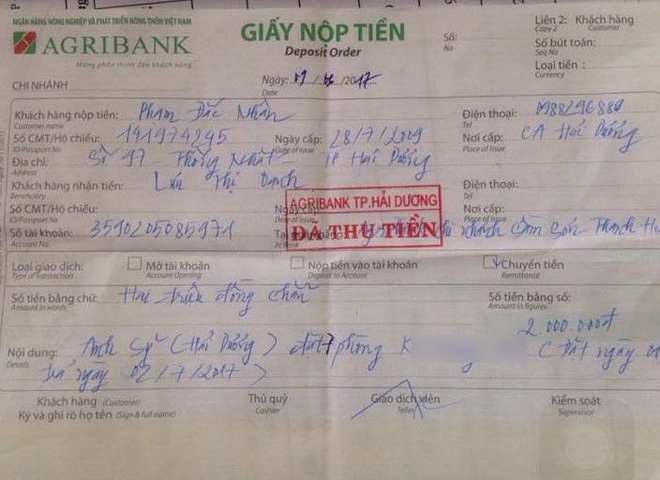 NGÂN HÀNG NÔNG NGHIỆP VÀ PHÁT TRIỂN NÔNG THÔN VIỆT NAM
AGRIBANK
Mang phồn thịnh đến khách hàng
GIẤY NỘP TIỀN
Deposit Order
Số:
No
Liên 2: Khách hàng
Copy 2 Customer
Số bút toán:
Seq No
Loại tiền:
Currency
CHI NHÁNH
Ngày: /2017
Khách hàng nộp tiền: Phạm Đắc Nhân
Customer name
Điện thoại:
Tel
Số CMT/Hộ chiếu: 141974295 Ngày cấp: 28/7/2009 Nơi cấp: CA Hải Dương
ID/Passport No Date of issue Place of issue
Địa chỉ: Số 17 - Thống Nhất - TP Hải Dương
Address
Khách hàng nhận tiền: Thị
Beneficiary
Điện thoại:
Tel
Số CMT/Hộ chiếu: Nơi cấp:
ID/Passport No Place of issue
AGRIBANK TP.HẢI DƯƠNG
ĐÃ THU TIỀN
Số tài khoản: 3510205085971 chi nhánh Sầm Sơn - Thanh
Account No.
Loại giao dịch: Mở tài khoản Nộp tiền vào tài khoản Chuyển tiền
Type of transaction Account Opening Deposit to Account Remittance
Số tiền bằng chữ: Hai triệu đồng chẵn
Amount in words
Số tiền bằng số:
Amount in figures
2.000.000đ
Nội dung: Anh Sỹ (Hải Dương) đặt 7 phòng K
Details
( Đặt ngày 01
trả ngày 02/7/2017)
Khách hàng (Customer) Thủ quỹ Giao dịch viên Kiểm soát
Ký và ghi rõ họ tên (Sign & full name) Cashier Teller Supervisor